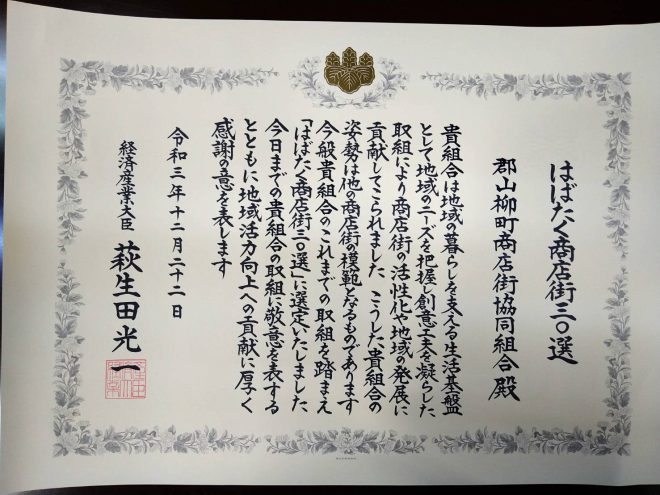 はばたく商店街三〇選
郡山柳町商店街協同組合 殿
貴組合は地域の暮らしを支える生活基盤
として地域のニーズを把握し創意工夫を凝らした
取組により商店街の活性化や地域の発展に
貢献してこられました こうした貴組合の
姿勢は他の商店街の模範となるものであります
今般貴組合のこれまでの取組を踏まえ
「はばたく商店街三〇選」に選定いたしました
今日までの貴組合の取組に敬意を表する
とともに地域活力向上への貢献に厚く
感謝の意を表します
令和三年十二月二十二日
経済産業大臣 萩生田光一